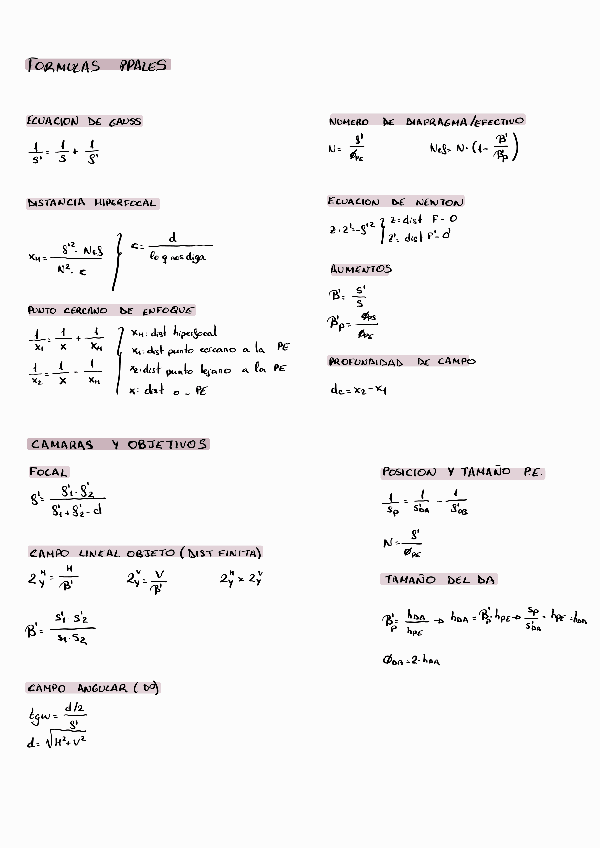 FORMULAS PPALES
ECUACION DE GAUSS
1/s' = 1/s + 1/f'
DISTANCIA HIPERFOCAL
x_H = f'² · Nef / N² · c } c = d / lo q nos diga
PUNTO CERCANO DE ENFOQUE
1/x1 = 1/x + 1/x_H
1/x2 = 1/x - 1/x_H
x_H: dist hiperfocal
x1: dist punto cercano a la PE
x2: dist punto lejano a la PE
x: dist o - PE
NUMERO DE DIAFRAGMA/EFECTIVO
N = f'/ø_PE Nef = N · (1 - β'/β'p)
ECUACION DE NEWTON
z · z' = -f'² { z = dist F - O
z' = dist F' - O'
AUMENTOS
β' = s'/s
β'p = ø_PS/ø_PE
PROFUNDIDAD DE CAMPO
dc = x2 - x1
CAMARAS Y OBJETIVOS
FOCAL
f' = f'1 · f'2 / f'1 + f'2 - d
CAMPO LINEAL OBJETO (DIST FINITA)
2y^H = H/β' 2y^V = V/β' 2y^H × 2y^V
β' = s'1 s'2 / s1 · s2
CAMPO ANGULAR (DO)
tgw = d/2 / f'
d = √H² + V²
POSICION Y TAMAÑO P.E.
1/sp = 1/s'DA - 1/f'OB
N = f'/ø_PE
TAMAÑO DEL DA
β'p = hDA/hPE → hDA = β'p · hPE → sp/s'DA · hPE = hDA
ø_DA = 2 · hDA